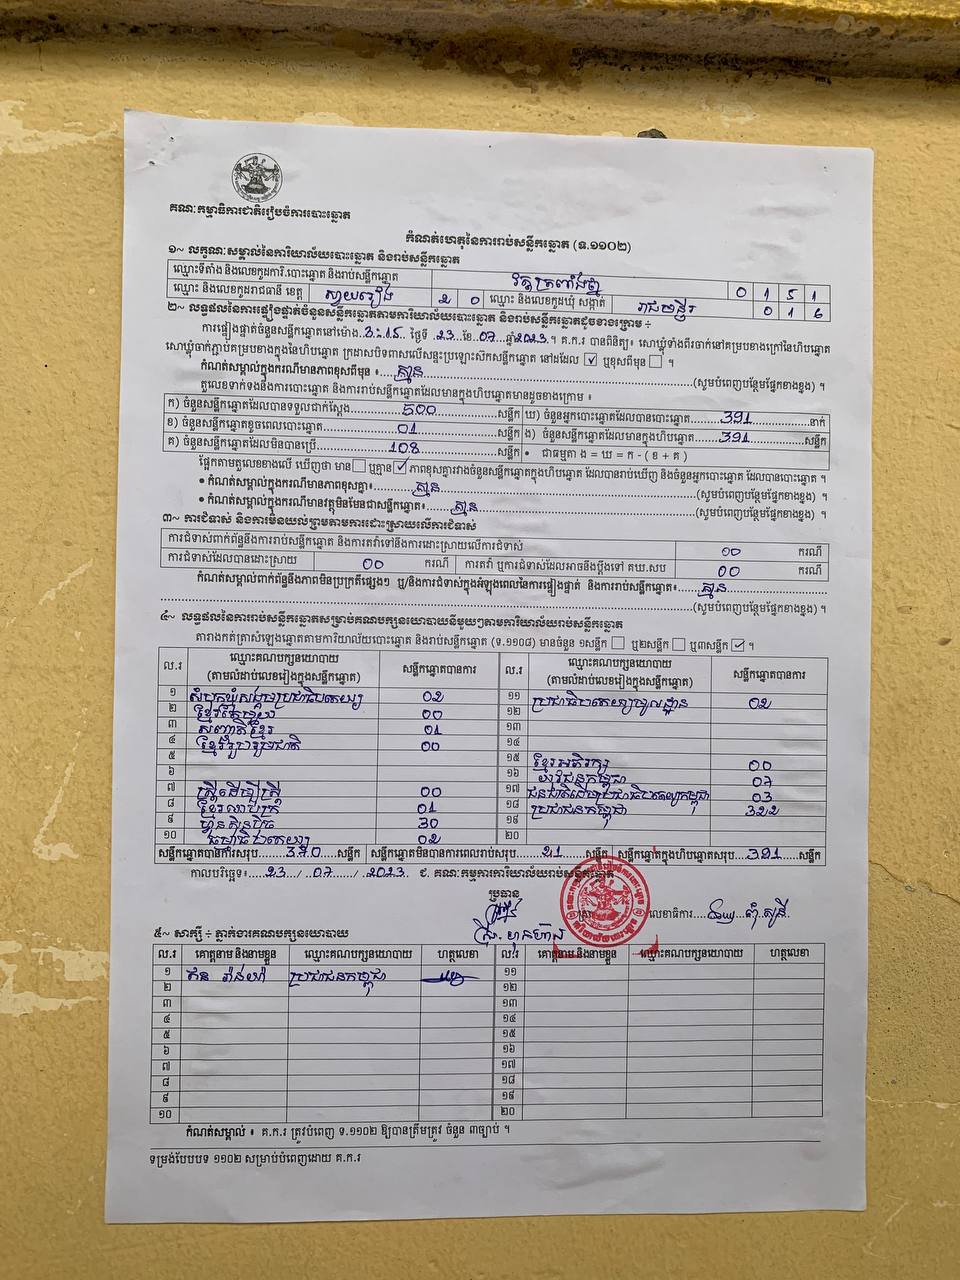 គណៈកម្មាធិការជាតិរៀបចំការបោះឆ្នោត
កំណត់ហេតុនៃការរាប់សន្លឹកឆ្នោត (ទ.១១០២)
១~ លក្ខណៈសម្គាល់នៃការិយាល័យបោះឆ្នោត និងរាប់សន្លឹកឆ្នោត
ឈ្មោះទីតាំង និងលេខកូដការិ.បោះឆ្នោត និងរាប់សន្លឹកឆ្នោត វត្តត្រពាំងថ្មា 0 1 5 1
ឈ្មោះ និងលេខកូដរាជធានី ខេត្ត ស្វាយរៀង 2 0 ឈ្មោះ និងលេខកូដឃុំ សង្កាត់ រាជមន្ទីរ 0 1 6
២~ លទ្ធផលនៃការផ្ទៀងផ្ទាត់ចំនួនសន្លឹកឆ្នោតតាមការិយាល័យបោះឆ្នោត និងរាប់សន្លឹកឆ្នោតដូចខាងក្រោម ÷
ការផ្ទៀងផ្ទាត់ចំនួនសន្លឹកឆ្នោតនៅម៉ោង 3:15 ថ្ងៃទី 23 ខែ 07 ឆ្នាំ 2023 ។ គ.ក.រ បានពិនិត្យ៖ សោឃ្មុំទាំងពីរចាក់នៅគម្របខាងក្រៅនៃហិបឆ្នោត
សោឃ្មុំចាក់ភ្ជាប់គម្របខាងក្នុងនៃហិបឆ្នោត ក្រដាសបិទពាសលើសន្លះប្រឡោះសៀកសន្លឹកឆ្នោត នៅដដែល ☑ ឬខុសពីមុន ☐ ។
កំណត់សម្គាល់ក្នុងករណីមានភាពខុសពីមុន ៖ គ្មាន (សូមបំពេញបន្ថែមផ្នែកខាងខ្នង) ។
តួលេខទាក់ទងនឹងការបោះឆ្នោត និងការរាប់សន្លឹកឆ្នោតដែលមានក្នុងហិបឆ្នោតមានដូចខាងក្រោម ៖
ក) ចំនួនសន្លឹកឆ្នោតដែលបានទទួលជាក់ស្តែង 500 សន្លឹក ឃ) ចំនួនអ្នកបោះឆ្នោតដែលបានបោះឆ្នោត 391 នាក់
ខ) ចំនួនសន្លឹកឆ្នោតខូចពេលបោះឆ្នោត 01 សន្លឹក ង) ចំនួនសន្លឹកឆ្នោតដែលមានក្នុងហិបឆ្នោត 391 សន្លឹក
គ) ចំនួនសន្លឹកឆ្នោតដែលមិនបានប្រើ 108 សន្លឹក • ជាធម្មតា ង = ឃ = ក - ( ខ + គ )
ផ្អែកតាមតួលេខខាងលើ ឃើញថា មាន ☐ ឬគ្មាន ☑ ភាពខុសគ្នារវាងចំនួនសន្លឹកឆ្នោតក្នុងហិបឆ្នោត ដែលបានរាប់ឃើញ និងចំនួនអ្នកបោះឆ្នោត ដែលបានបោះឆ្នោត ។
• កំណត់សម្គាល់ក្នុងករណីមានភាពខុសគ្នា៖ គ្មាន (សូមបំពេញបន្ថែមផ្នែកខាងខ្នង) ។
• កំណត់សម្គាល់ក្នុងករណីមានវត្ថុមិនមែនជាសន្លឹកឆ្នោត៖ គ្មាន (សូមបំពេញបន្ថែមផ្នែកខាងខ្នង) ។
៣~ ការជំទាស់ និងការមិនយល់ព្រមតាមការដោះស្រាយលើការជំទាស់
ការជំទាស់ពាក់ព័ន្ធនឹងការរាប់សន្លឹកឆ្នោត និងការតវ៉ាទៅនឹងការដោះស្រាយលើការជំទាស់ 00 ករណី
ការជំទាស់ដែលបានដោះស្រាយ 00 ករណី ការតវ៉ា ឬការជំទាស់ដែលអាចនឹងប្តឹងទៅ គឃ.សប 00 ករណី
កំណត់សម្គាល់ពាក់ព័ន្ធនឹងភាពមិនប្រក្រតីផ្សេងៗ ឬ/និងការជំទាស់ក្នុងអំឡុងពេលនៃការផ្ទៀងផ្ទាត់ និងការរាប់សន្លឹកឆ្នោត៖ គ្មាន
(សូមបំពេញបន្ថែមផ្នែកខាងខ្នង) ។
៤~ លទ្ធផលនៃការរាប់សន្លឹកឆ្នោតសម្រាប់គណបក្សនយោបាយនីមួយៗតាមការិយាល័យរាប់សន្លឹកឆ្នោត
តារាងកត់ត្រាសំឡេងឆ្នោតតាមការិយាល័យបោះឆ្នោត និងរាប់សន្លឹកឆ្នោត (ទ.១១០៨) មានចំនួន ១សន្លឹក ☐ ឬ២សន្លឹក ☐ ឬ៣សន្លឹក ☑ ។
ល.រ ឈ្មោះគណបក្សនយោបាយ (តាមលំដាប់លេខរៀងក្នុងសន្លឹកឆ្នោត) សន្លឹកឆ្នោតបានការ ល.រ ឈ្មោះគណបក្សនយោបាយ (តាមលំដាប់លេខរៀងក្នុងសន្លឹកឆ្នោត) សន្លឹកឆ្នោតបានការ
១ សំបុកឃ្មុំសង្គមប្រជាធិបតេយ្យ 02 ១១ ប្រជាធិបតេយ្យមូលដ្ឋាន 02
២ ខ្មែរតែមួយ 00 ១២
៣ សញ្ជាតិខ្មែរ 01 ១៣
៤ ខ្មែររួបរួមជាតិ 00 ១៤
៥ ១៥ ខ្មែរអភិរក្ស 00
៦ ១៦ យុវជនកម្ពុជា 07
៧ ស្ត្រីដើម្បីស្ត្រី 00 ១៧ ជនជាតិដើមប្រជាធិបតេយ្យកម្ពុជា 03
៨ ខ្មែរឈប់ក្រ 01 ១៨ ប្រជាជនកម្ពុជា 322
៩ ហ៊្វុនស៊ិនប៉ិច 30 ១៩
១០ ធម្មាធិបតេយ្យ 02 ២០
សន្លឹកឆ្នោតបានការសរុប 370 សន្លឹក សន្លឹកឆ្នោតមិនបានការពេលរាប់សរុប 21 សន្លឹក សន្លឹកឆ្នោតក្នុងហិបឆ្នោតសរុប 391 សន្លឹក
កាលបរិច្ឆេទ៖ 23 / 07 / 2023 ជ. គណៈកម្មការការិយាល័យរាប់សន្លឹកឆ្នោត
ប្រធាន
លេខាធិការ
៥~ សាក្សី ÷ ភ្នាក់ងារគណបក្សនយោបាយ
ល.រ គោត្តនាម និងនាមខ្លួន ឈ្មោះគណបក្សនយោបាយ ហត្ថលេខា ល.រ គោត្តនាម និងនាមខ្លួន ឈ្មោះគណបក្សនយោបាយ ហត្ថលេខា
១ ប្រជាជនកម្ពុជា ១១
២ ១២
៣ ១៣
៤ ១៤
៥ ១៥
៦ ១៦
៧ ១៧
៨ ១៨
៩ ១៩
១០ ២០
កំណត់សម្គាល់ ៖ គ.ក.រ ត្រូវបំពេញ ទ.១១០២ ឱ្យបានត្រឹមត្រូវ ចំនួន ៣ច្បាប់ ។
ទម្រង់បែបបទ ១១០២ សម្រាប់បំពេញដោយ គ.ក.រ